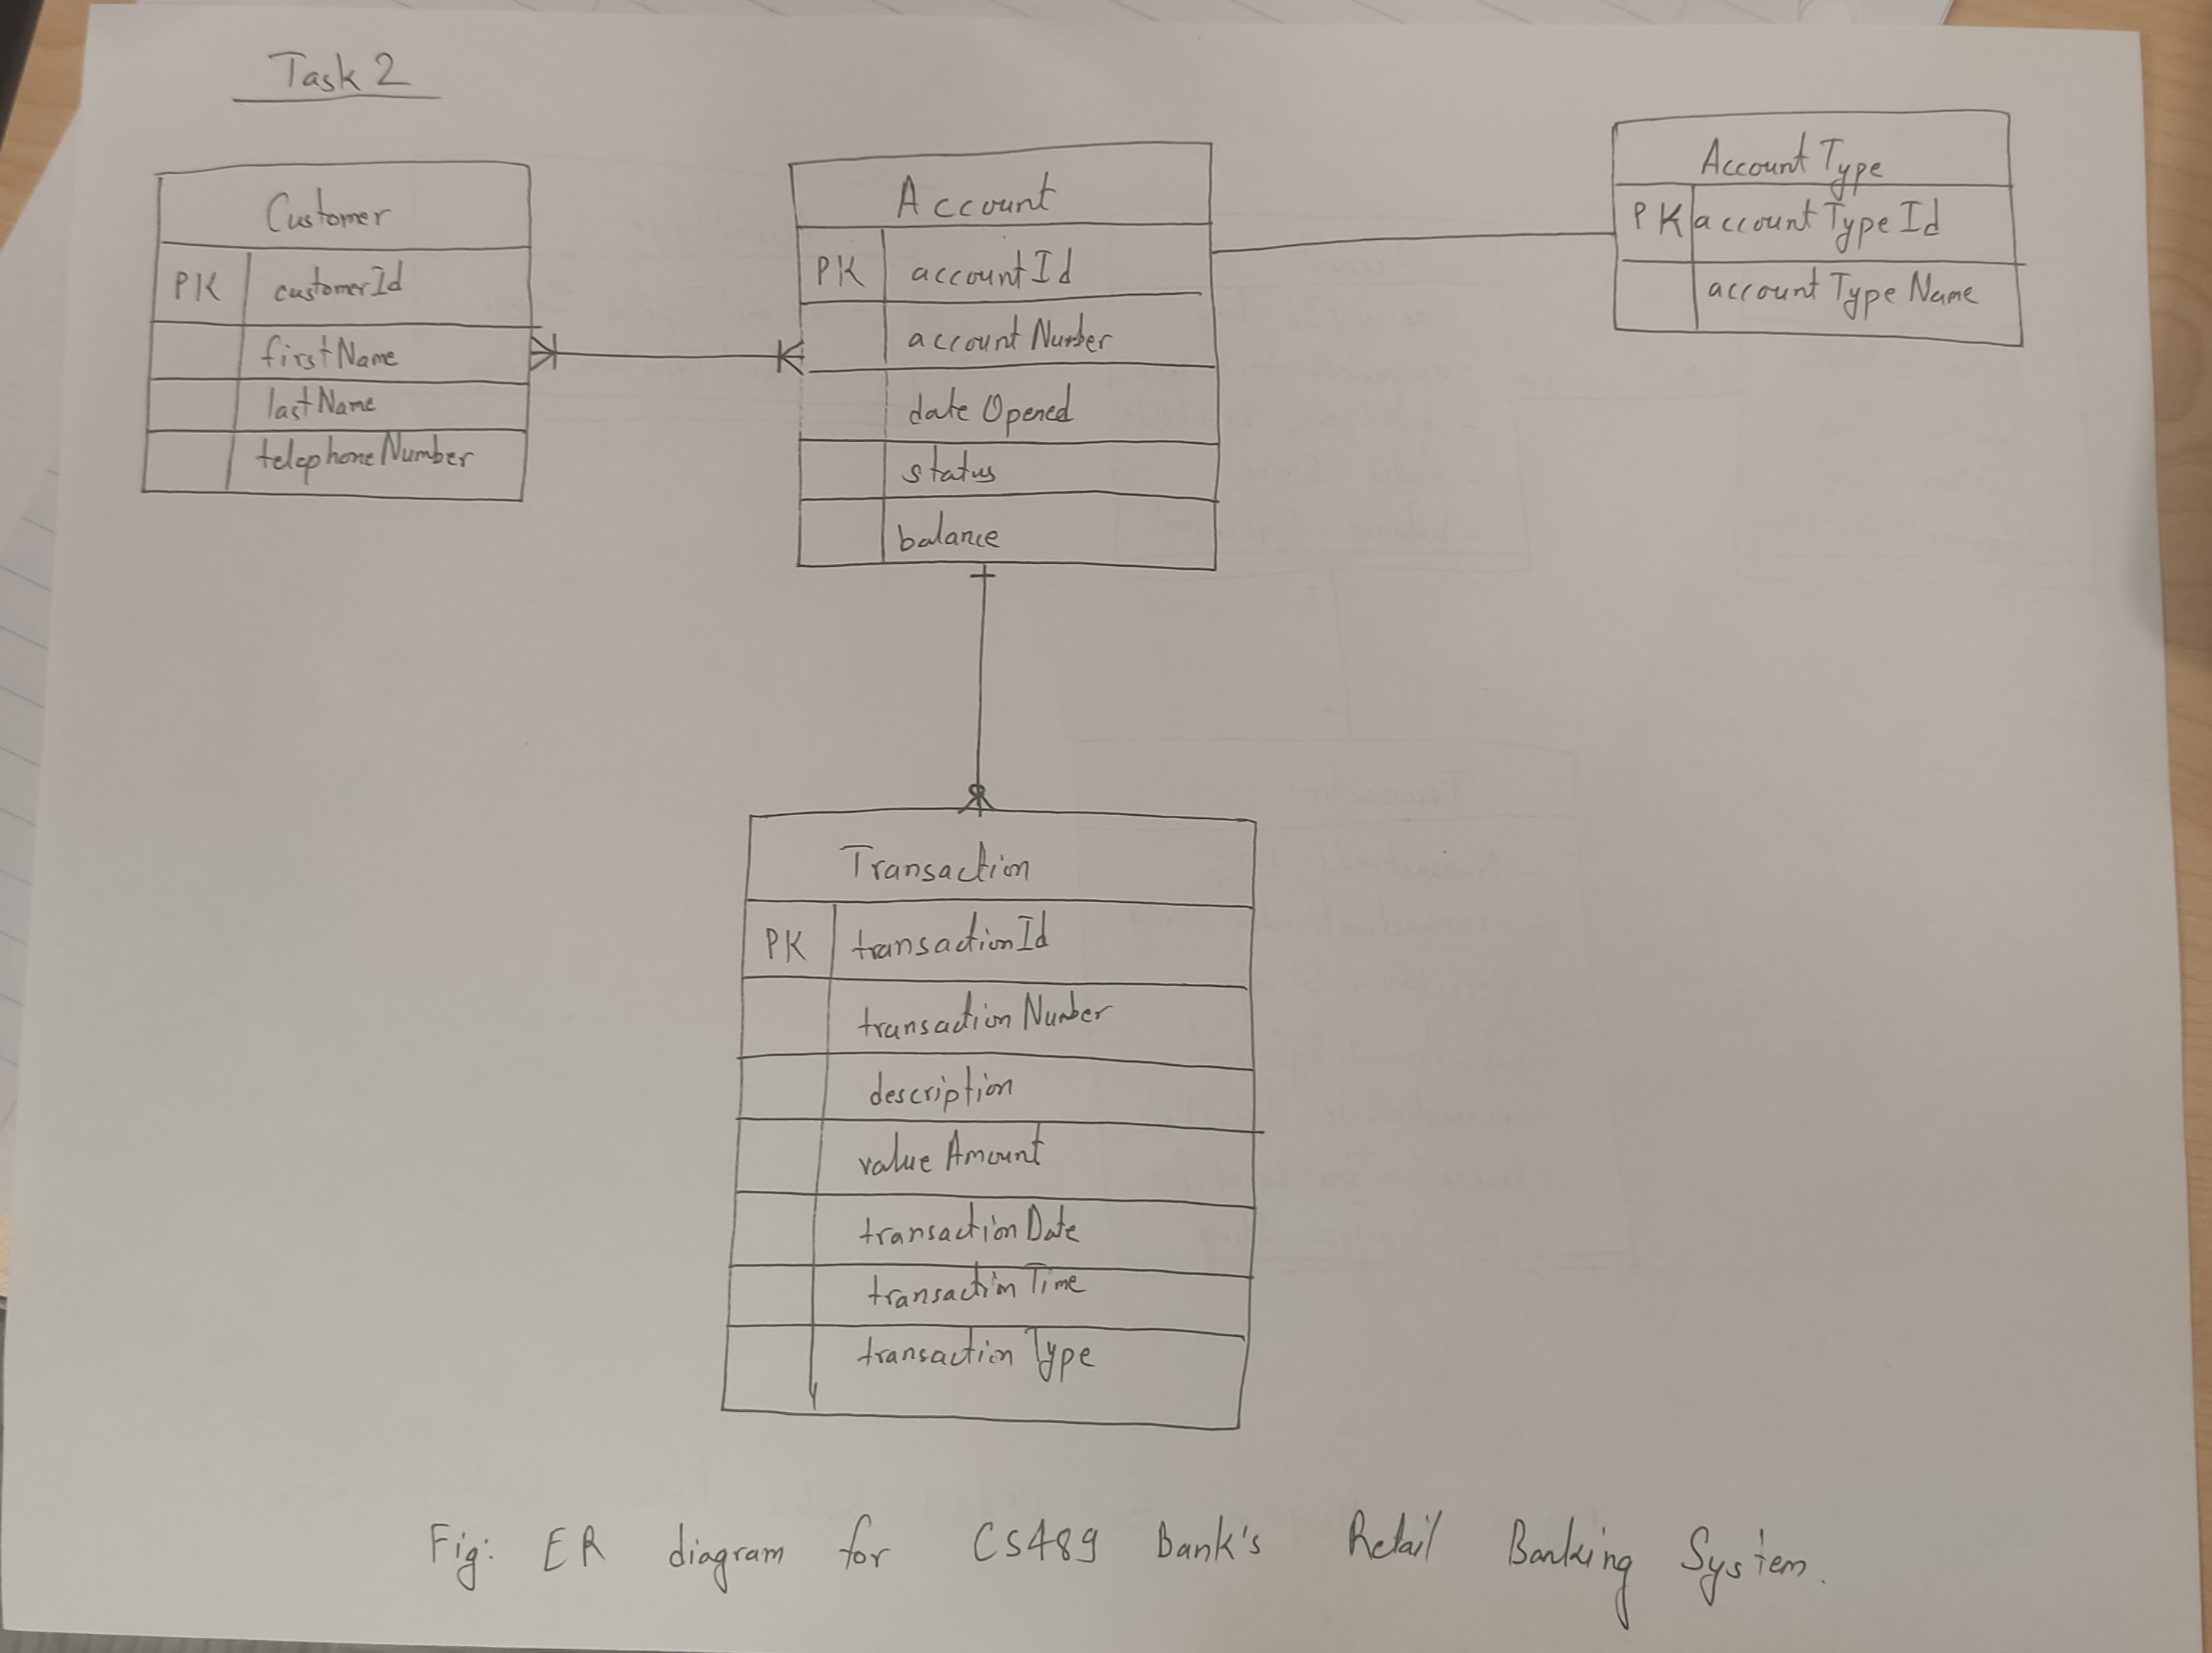 Task 2
Customer
PK customerId
firstName
lastName
telephoneNumber
Account
PK accountId
accountNumber
dateOpened
status
balance
Account Type
PK accountTypeId
accountTypeName
Transaction
PK transactionId
transactionNumber
description
valueAmount
transactionDate
transactionTime
transactionType
Fig: ER diagram for CS489 Bank's Retail Banking System.